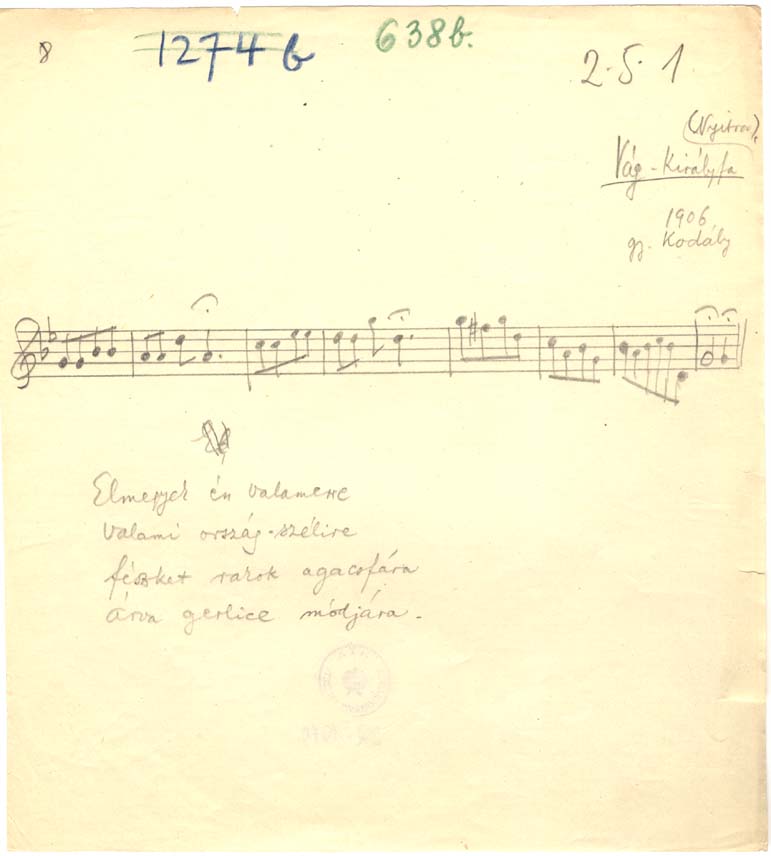 8
1274 b
638b.
2·5·1
(Nyitra),
Vág-Királyfa
1906
gy. Kodály
Elmegyek én valamerre
Valami ország-szélire
fészket rakok agacsfára
Árva gerlice módjára.